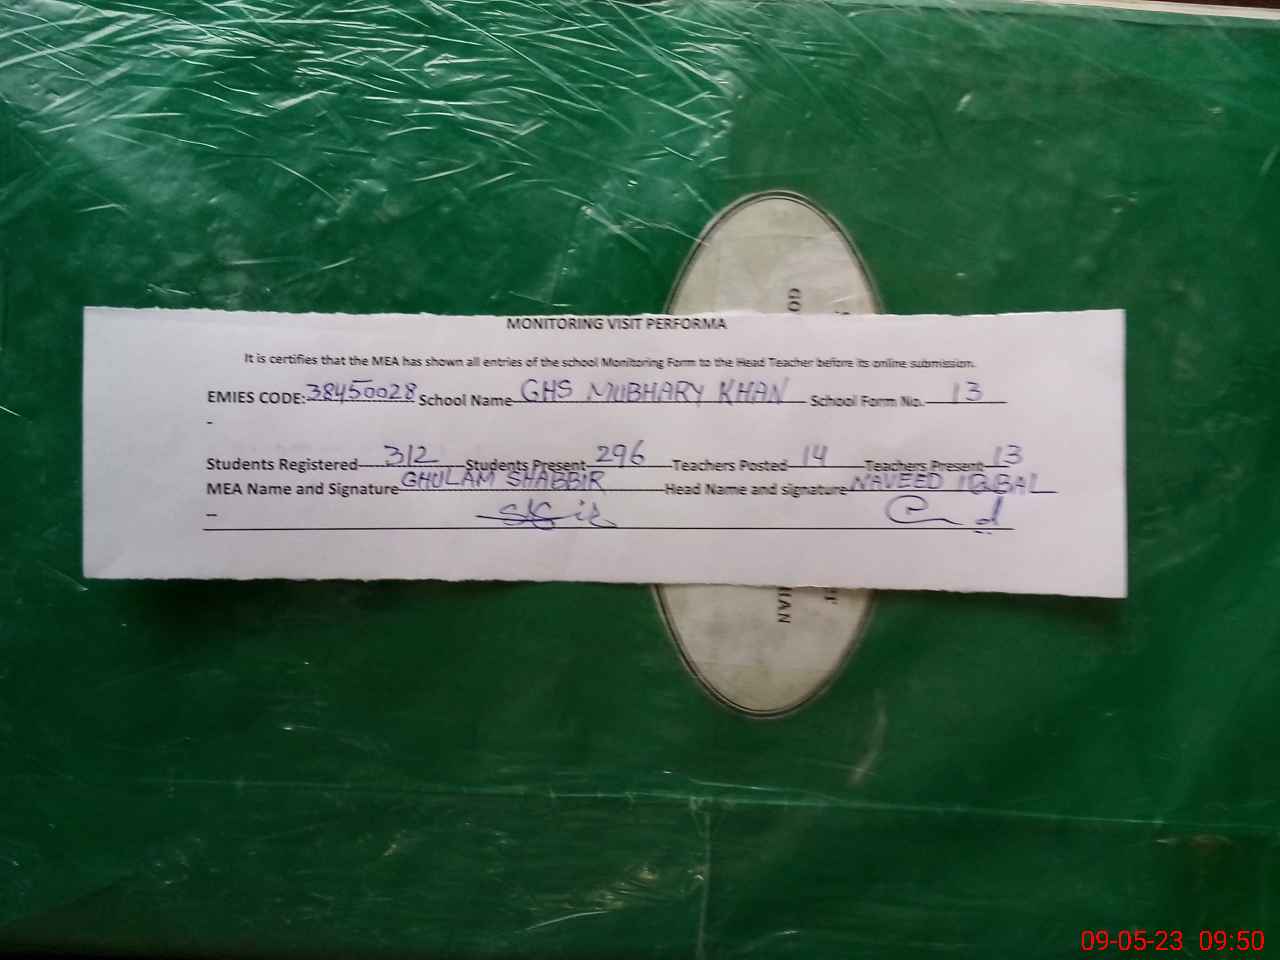 GO
MONITORING VISIT PERFORMA
It is certifies that the MEA has shown all entries of the school Monitoring Form to the Head Teacher before its online submission.
EMIES CODE: 38450028 School Name GHS MUBHARY KHAN School Form No. 13
-
Students Registered 312 Students Present 296 Teachers Posted 14 Teachers Present 13
MEA Name and Signature GHULAM SHABBIR Head Name and signature NAVEED IQBAL
–
HAN
09-05-23 09:50